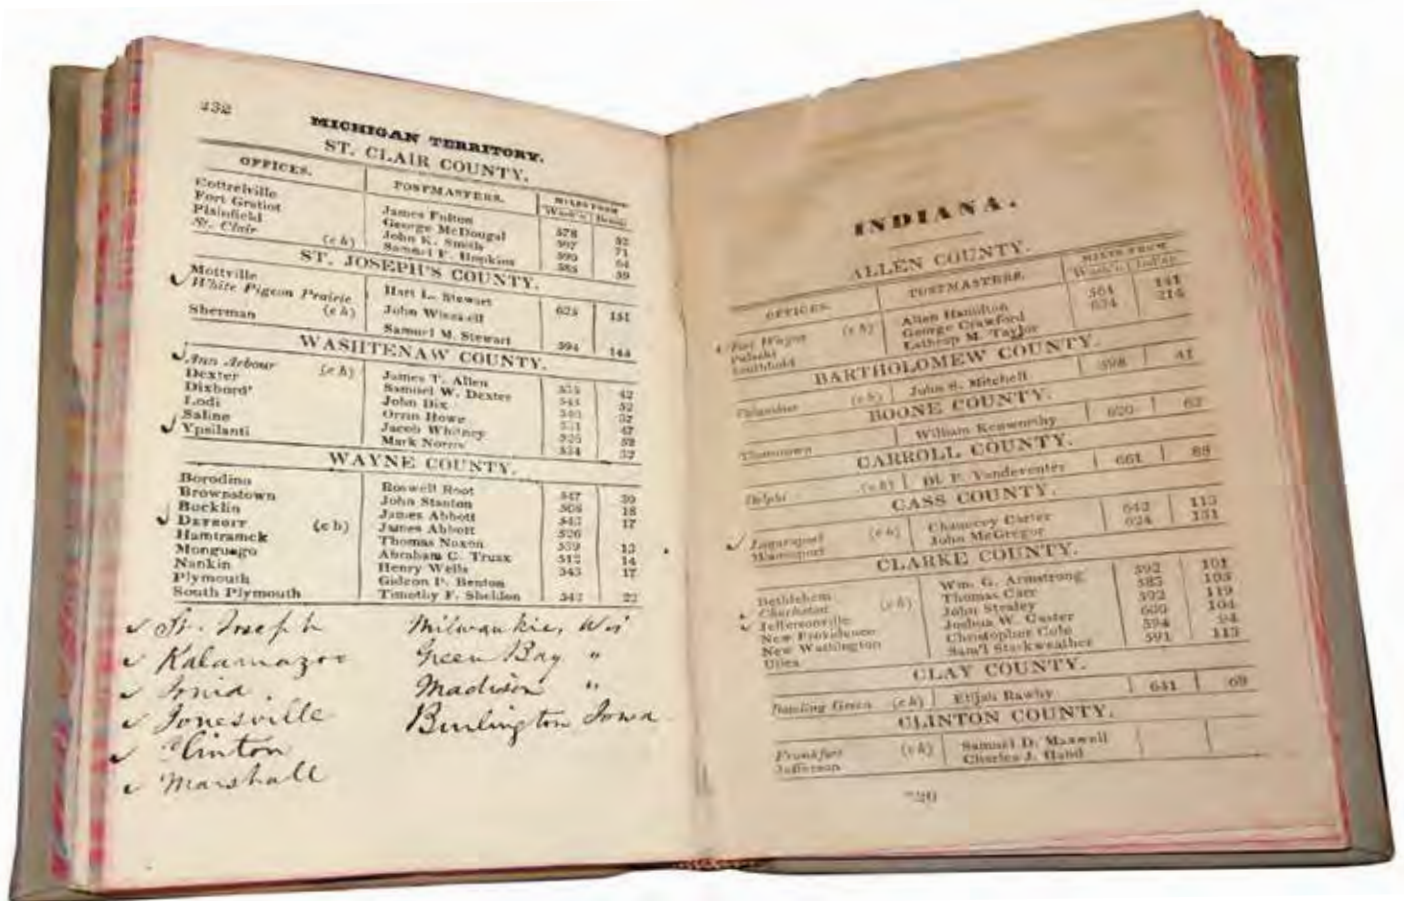 232
MICHIGAN TERRITORY.
ST. CLAIR COUNTY.
OFFICES. POSTMASTERS. MILES FROM
Wash'n
Cottrelville James Fulton 578 52
Fort Gratiot George McDougal 597 71
Plainfield John K. Smith 590 64
St. Clair (c h) Samuel F. Hopkins 585 59
ST. JOSEPH'S COUNTY.
Mottville Hart L. Stewart 625 151
White Pigeon Prairie John Winchell
Sherman (c h) Samuel M. Stewart 594 144
WASHTENAW COUNTY.
Ann Arbour (c h) James T. Allen 42
Dexter Samuel W. Dexter 544 52
Dixboro' John Dix 57
Lodi Orrin Howe 551 47
Saline Jacob Whitney 52
Ypsilanti Mark Norris 534 32
WAYNE COUNTY.
Borodino Roswell Root 547 30
Brownstown John Stanton 508 18
Bucklin James Abbott 543 17
DETROIT (c h) James Abbott 526
Hamtramck Thomas Noxon 539 13
Monguago Abraham C. Truax 512 14
Nankin Henry Wells 543 17
Plymouth Gideon P. Benton
South Plymouth Timothy F. Sheldon 542 22
St. Joseph Milwaukie, Wis
Kalamazoo Green Bay "
Ionia. Madison "
Jonesville Burlington Iowa
Clinton
Marshall
INDIANA.
ALLEN COUNTY.
OFFICES. POSTMASTERS. MILES FROM
Wash'n Ind'ap.
Fort Wayne (c h) Allen Hamilton 561 141
Pulaski George Crawford 624 214
Southhold Lathrop M. Taylor
BARTHOLOMEW COUNTY.
Columbus (c h) John S. Mitchell 598 41
BOONE COUNTY.
Thorntown William Kenworthy 620 62
CARROLL COUNTY.
Delphi (c h) H. P. Vandeventer 661 88
CASS COUNTY.
Logansport (c h) Chauncey Carter 642 113
John McGregor 624 131
CLARKE COUNTY.
Bethlehem Wm. G. Armstrong 592 101
Charleston (c h) Thomas Carr 585 105
Jeffersonville John Stealey 592 119
New Providence Joshua W. Custer 600 104
New Washington Christopher Cole 594 94
Utica Sam'l Starkweather 591 113
CLAY COUNTY.
Bowling Green (c h) Elijah Rawley 641 69
CLINTON COUNTY.
Frankfort (c h) Samuel D. Maxwell
Jefferson Charles J. Hand
*20